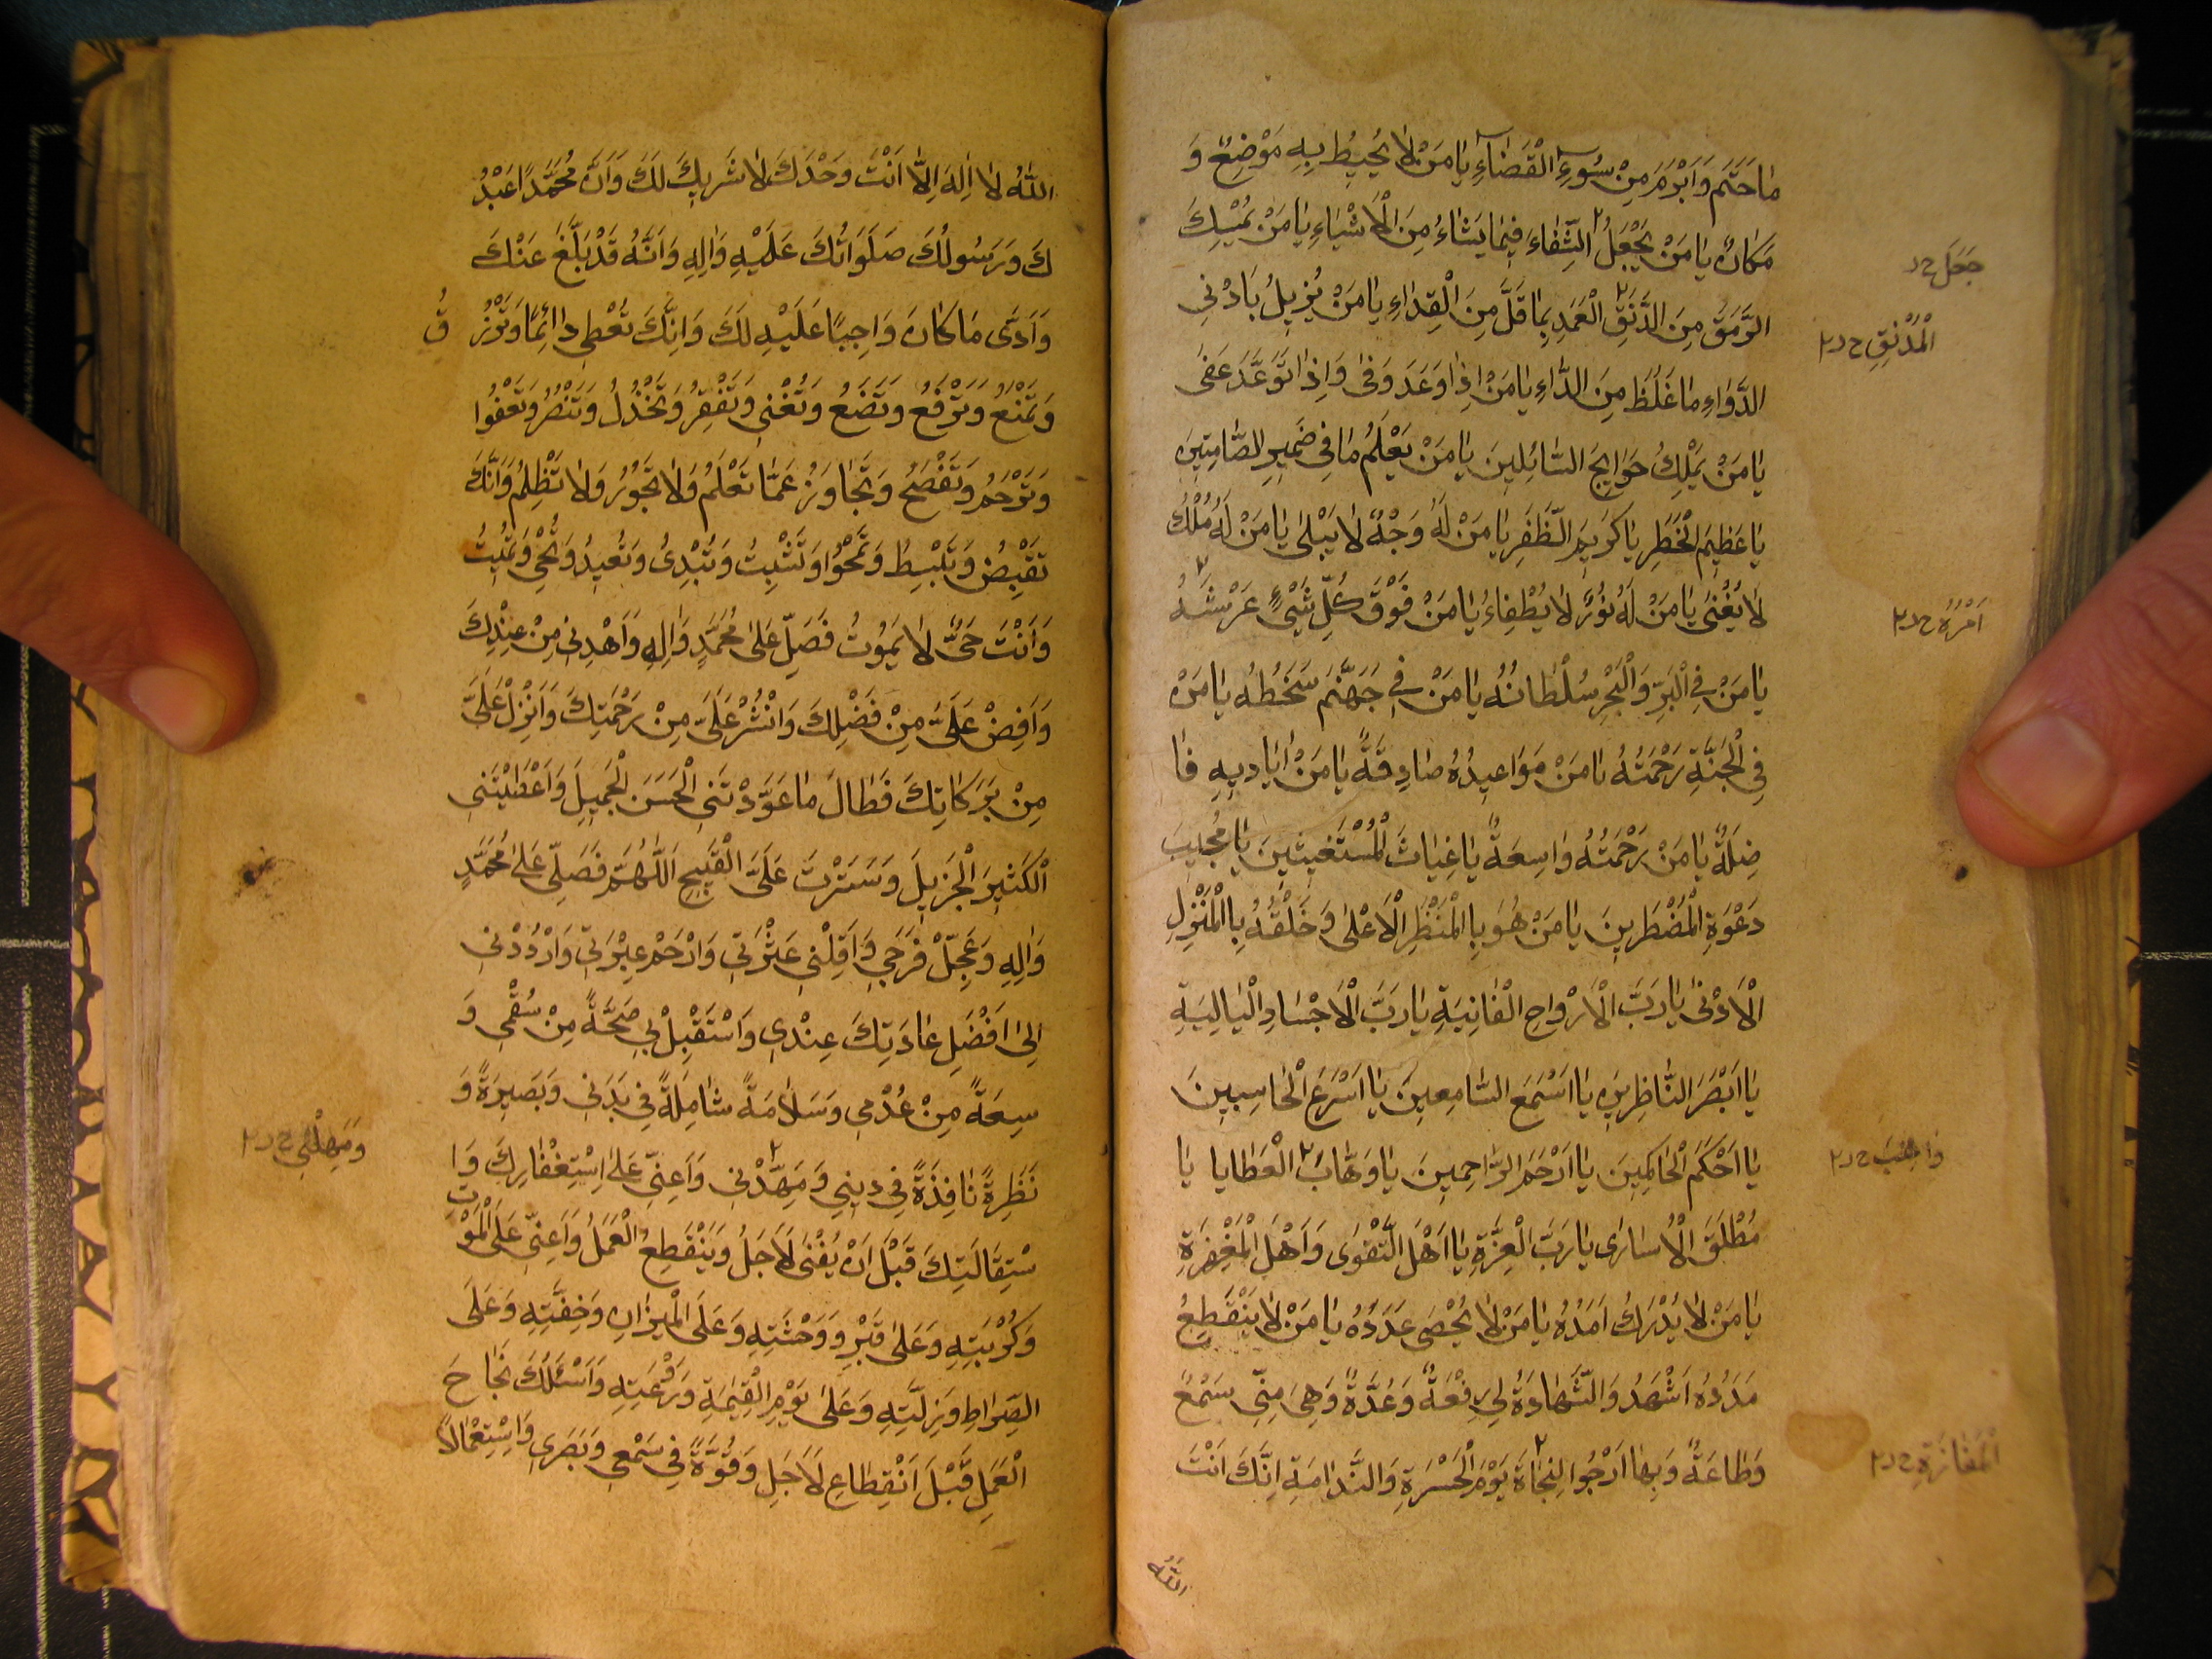 مٰا حَتَمَ وَاَبْرَمَ مِنْ سُوۤءِ الْقَضٰاۤءِ يٰا مَنْ لٰا يُحِيطُ بِهِ مَوْضِعٌ وَ
مَكٰانٌ يٰا مَنْ يَجْعَلُ الشِّفٰاءَ فِيمٰا يَشٰاءُ مِنَ الْاَشْيٰاءِ يٰا مَنْ يُمْسِكُ
جَعَلَ ح د
الرَّمَقَ مِنَ الدَّنَقِ الْعَمَدِ بِمٰا قَلَّ مِنَ الْغِذٰاءِ يٰا مَنْ يُزِيلُ بِاَدْنٰى
الْمُدْنِقِ ح د ٢
الدَّوٰاءِ مٰا غَلُظَ مِنَ الدّٰاءِ يٰا مَنْ اِذٰا وَعَدَ وَفٰى وَاِذٰا تَوَعَّدَ عَفٰى
يٰا مَنْ يَمْلِكُ حَوٰايِجَ السّٰائِلِينَ يٰا مَنْ يَعْلَمُ مٰا فِى ضَمِيرِ الصّٰامِتِينَ
يٰا عَظِيمَ الْخَطَرِ يٰا كَرِيمَ الظَّفَرِ يٰا مَنْ لَهُ وَجْهٌ لٰا يَبْلٰى يٰا مَنْ لَهُ مُلْكٌ
لٰا يُفْنٰى يٰا مَنْ لَهُ نُورٌ لٰا يُطْفِاءُ يٰا مَنْ فَوْقَ كُلِّ شَيْىءٍ عَرْشُهُ
اَمْرُهُ ح د ٢
يٰا مَنْ فِى الْبَرِّ وَالْبَحْرِ سُلْطٰانُهُ يٰا مَنْ فِى جَهَنَّمَ سَخَطُهُ يٰا مَنْ
فِى الْجَنَّةِ رَحْمَتُهُ يٰا مَنْ مَوٰاعِيدُهُ صٰادِقَةٌ يٰا مَنْ اَيٰادِيهِ فٰا
ضِلَةٌ يٰا مَنْ رَحْمَتُهُ وٰاسِعَةٌ يٰا غِيٰاثَ الْمُسْتَغِيثِينَ يٰا مُجِيبَ
دَعْوَةِ الْمُضْطَرِينَ يٰا مَنْ هُوَ بِالْمَنْظَرِ الْاَعْلٰى وَخَلْقُهُ بِالْمَنْزِلِ
الْاَدْنٰى يٰا رَبَّ الْاَرْوٰاحِ الْفٰانِيَةِ يٰا رَبَّ الْاَجْسٰادِ الْبٰالِيَةِ
يٰا اَبْصَرَ النّٰاظِرِينَ يٰا اَسْمَعَ السّٰامِعِينَ يٰا اَسْرَعَ الْحٰاسِبِينَ
يٰا اَحْكَمَ الْحٰاكِمِينَ يٰا اَرْحَمَ الرّٰاحِمِينَ يٰا وَهّٰابَ الْعَطٰايا يٰا
وٰاهِبَ ح د ٢
مُطْلَقَ الْاُسٰارٰى يٰا رَبَّ الْعِزَّةِ يٰا اَهْلَ التَّقْوٰى وَاَهْلَ الْمَغْفِرَةِ
يٰا مَنْ لٰا يُدْرَكُ اَمَدُهُ يٰا مَنْ لٰا يُحْصٰى عَدَدُهُ يٰا مَنْ لٰا يَنْقَطِعُ
مَدَدُهُ اَشْهَدُ وَالشَّهٰادَةُ لِى رِفْعَةٌ وَعُدَّةٌ وَهِىَ مِنِّى سَمْعٌ
وَطٰاعَةٌ وَبِهٰا اَرْجُوا لِنَجٰاةَ يَوْمَ الْحَسْرَةِ وَالنَّدٰامَةِ اِنَّكَ اَنْتَ
الْمَفٰازَةِ ح د ٢
اللّٰهُ
اللّٰهُ لٰا اِلٰهَ اِلّٰا اَنْتَ وَحْدَكَ لٰا شَرِيكَ لَكَ وَاَنَّ مُحَمَّدًا عَبْدُ
كَ وَرَسُولُكَ صَلَوٰاتُكَ عَلَيْهِ وَاٰلِهِ وَاَنَّهُ قَدْ بَلَّغَ عَنْكَ
وَاَدّٰى مٰا كٰانَ وٰاجِبًا عَلَيْهِ لَكَ وَاِنَّكَ تُعْطِى دٰائِمًا وَتَرْزُ قُ
وَتَمْنَعُ وَتَرْفَعُ وَتَضَعُ وَتُغْنِى وَتُفْقِرُ وَتَخْذُلُ وَتَنْصُرُ وَتَعْفُوا
وَتَرْحَمُ وَتَفْصَحُ وَتَجٰاوَزُ عَمّٰا تَعْلَمُ وَلٰا تَجُورُ وَلٰا تَظْلِمُ وَاَنَّكَ
تَقْبِضُ وَتَبْسِطُ وَتَمْحُوا وَتُثْبِتُ وَتُبْدِئُ وَتُعِيدُ وَتُحْيِى وَتُمِيتُ
وَاَنْتَ حَىٌّ لٰا يَمُوتُ فَصَلِّ عَلٰى مُحَمَّدٍ وَاٰلِهِ وَاَهْدِنِى مِنْ عِنْدِكَ
وَاَفِضْ عَلَىَّ مِنْ فَضْلِكَ وَانْشُرْ عَلَىَّ مِنْ رَحْمَتِكَ وَاَنْزِلْ عَلَىَّ
مِنْ بَرَكٰاتِكَ فَطٰالَ مٰا عَوَّدْتَنِى الْحَسَنَ الْجَمِيلَ وَاَعْطَيْتَنِى
الْكَثِيرَ الْجَزِيلَ وَسَتَرْتَ عَلَىَّ الْقَبِيحَ اَللّٰهُمَّ فَصَلِّى عَلٰى مُحَمَّدٍ
وَاٰلِهِ وَعَجِّلْ فَرَجِى وَاَقِلْنِى عَثْرَتِى وَارْحَمْ عَبْرَتِى وَارْدُدْنِى
اِلٰى اَفْضَلِ عٰادَتِكَ عِنْدِى وَاسْتَقْبِلْ بِى صِحَّةً مِنْ سُقْمِى وَ
سِعَةً مِنْ عُدْمِى وَسَلٰامَةً شٰامِلَةً فِى بَدَنِى وَبَصِيرَةً وَ
نَظِرَةً نٰافِذَةً فِى دِينِى وَمَهِّدْنِى وَاَعِنِّى عَلٰى اِسْتِغْفٰارِكَ وَا
وَمَهِّلْنِى ح د ٢
سْتِقٰالَتِكَ قَبْلَ اَنْ يُفْنٰى لَاَجَلُ وَيَنْقَطِعُ الْعَمَلُ وَاَعِنِّى عَلَى الْمَوْتِ
وَكُرْبَتِهِ وَعَلٰى قَبْرِ وَوَحْشَتِهِ وَعَلَى الْمِيزٰانِ وَخِفَّتِهِ وَعَلَى
الصِّرٰاطِ وَزِلَّتِهِ وَعَلٰى يَوْمِ الْقِيٰمَةِ وَرَوْعَتِهِ وَاَسْئَلُكَ نَجٰاحَ
الْعَمَلِ قَبْلَ اَنْقِطٰاعِ لَاَجَلِ وَقُوَّةً فِى سَمْعِى وَبَصَرِى وَاسْتِعْمٰالًا